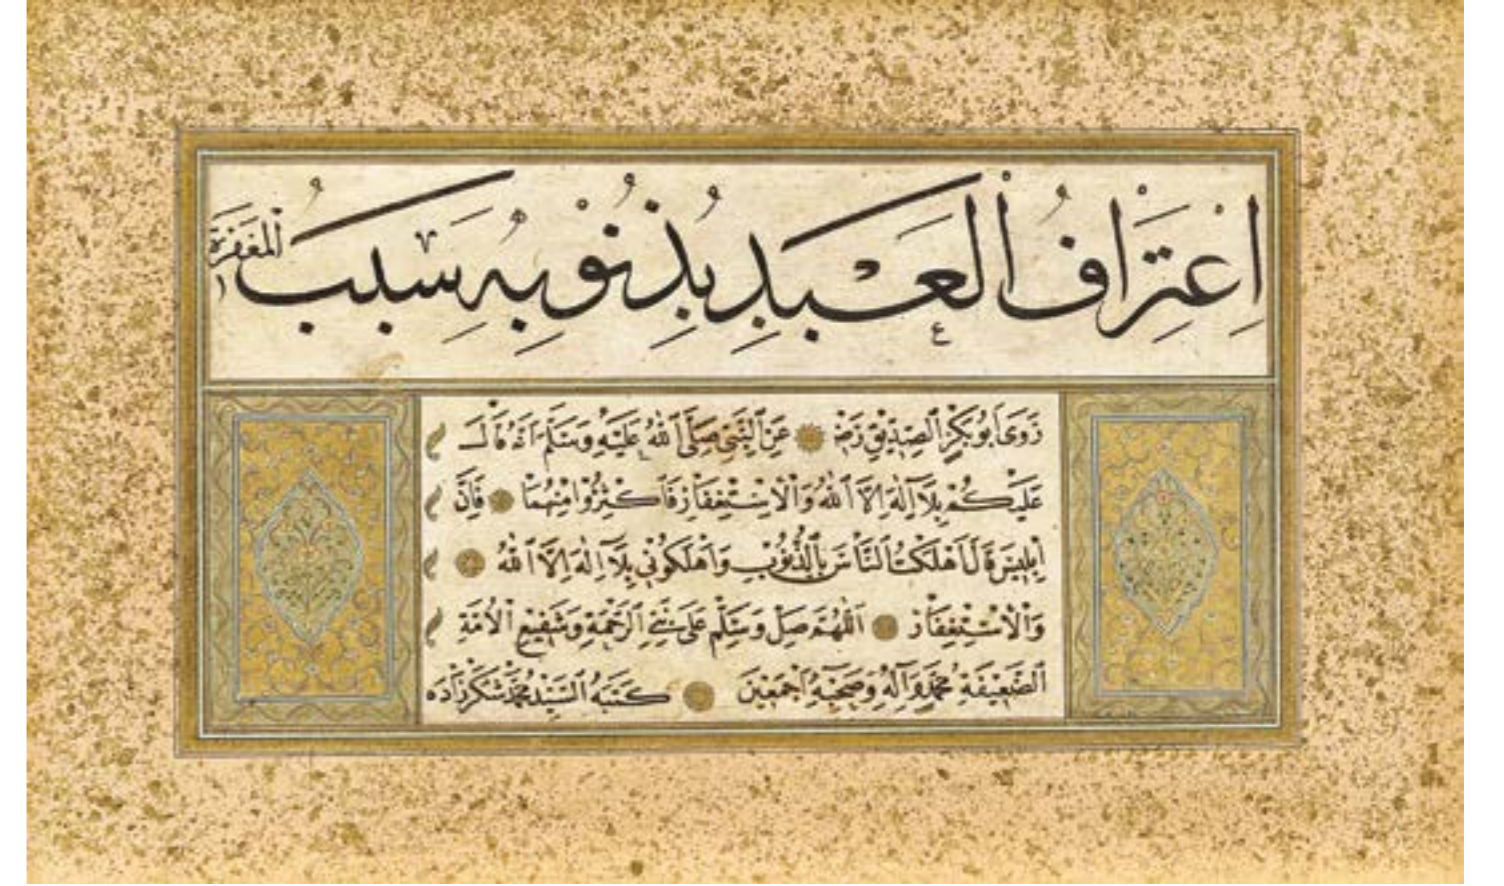 اِعْتِرَافُ الْعَبْدِ بِذُنُوبِهِ سَبَبُ الْمَغْفِرَةِ
رَوَى اَبُو بَكْرٍ الصِّدِّيقِ رَضِ عَنِ النَّبِيِّ صَلَّى اللّٰهُ عَلَيْهِ وَسَلَّمَ اَنَّهُ قَالَ
عَلَيْكُمْ بِلَآ اِلٰهَ اِلَّا اللّٰهُ وَالْاِسْتِغْفَارِ فَاَكْثِرُوا مِنْهُمَا فَاِنَّ
اِبْلِيسَ قَالَ اَهْلَكْتُ النَّاسَ بِالذُّنُوبِ وَاَهْلَكُونِي بِلَآ اِلٰهَ اِلَّا اللّٰهُ
وَالْاِسْتِغْفَارِ اَللّٰهُمَّ صَلِّ وَسَلِّمْ عَلَى نَبِيِّ الرَّحْمَةِ وَشَفِيعِ الْاُمَّةِ
الضَّعِيفَةِ مُحَمَّدٍ وَآلِهِ وَصَحْبِهِ اَجْمَعِينَ كَتَبَهُ السَّيِّدُ مُحَمَّدْ شَكَرْزَادَه